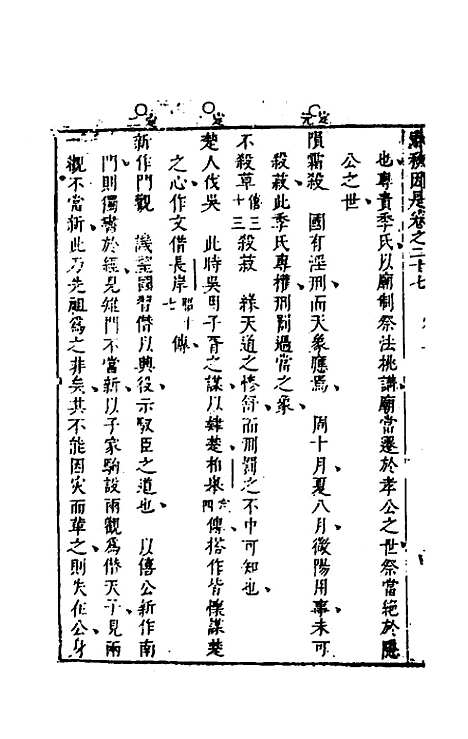 春秋因是卷之二十七
也專責季氏以廟制祭法桃講廟當遷於孝公之世祭當絶於隱
公之世
定元
隕霜殺　國有淫刑而天象應焉　周十月夏八月微陽用事未可
殺菽此季氏專權刑罰過當之象
不殺草僖三十三殺菽　繇天道之慘舒而刑罰之不中可知也
定二
楚人伐吳　此時吳用子胥之謀以肄楚柏舉定四傳搭作皆懷謀楚
之心作文借長岸昭十七傳
定二
新作門觀　譏望國習僭以興役示馭臣之道也　以僖公新作南
門則獨書於經見雉門不當新以子家駒設兩觀為僭天子見兩
觀不當新此乃先祖為之非矣其不能因災而革之則失在公身